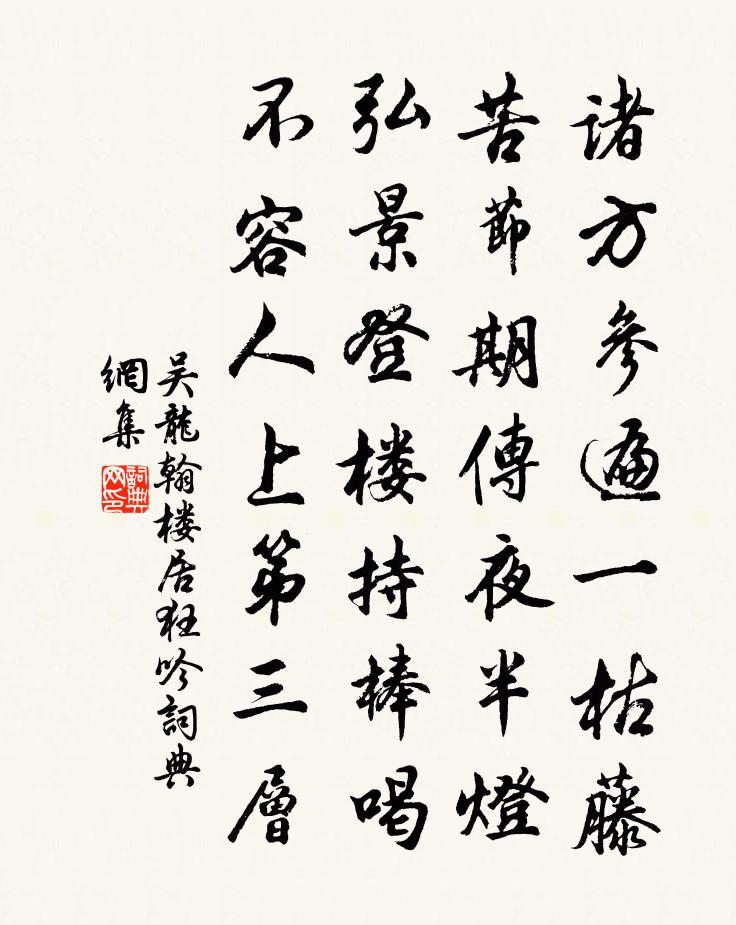 诸方参遍一枯藤
苦節期傳夜半燈
弘景登楼持棒喝
不容人上第三層
吴龍翰楼居狂吟詞典
網集
詞典
网印